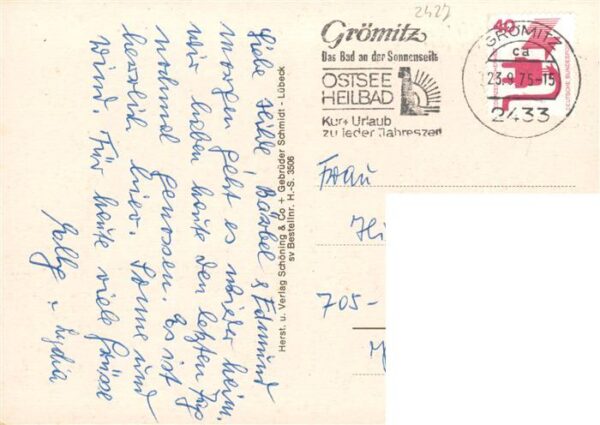 2427
Grömitz
Das Bad an der Sonnenseite
OSTSEE
HEILBAD
Kur + Urlaub
zu jeder Jahreszeit
40
DEUTSCHE BUNDESPOST
GRÖMITZ
ca
23.9.75-15
2433
Liebe Bärbel & Edmund
morgen geht es wieder heim.
wir haben heute den letzten Tag
nochmal genossen. Es ist
herrlich hier. Sonne und
Wind. Für heute viele Grüsse
Lydia
Herst. u. Verlag Schöning & Co + Gebrüder Schmidt - Lübeck
sv Bestellnr. H.-S. 3506
Frau
Hi
705-